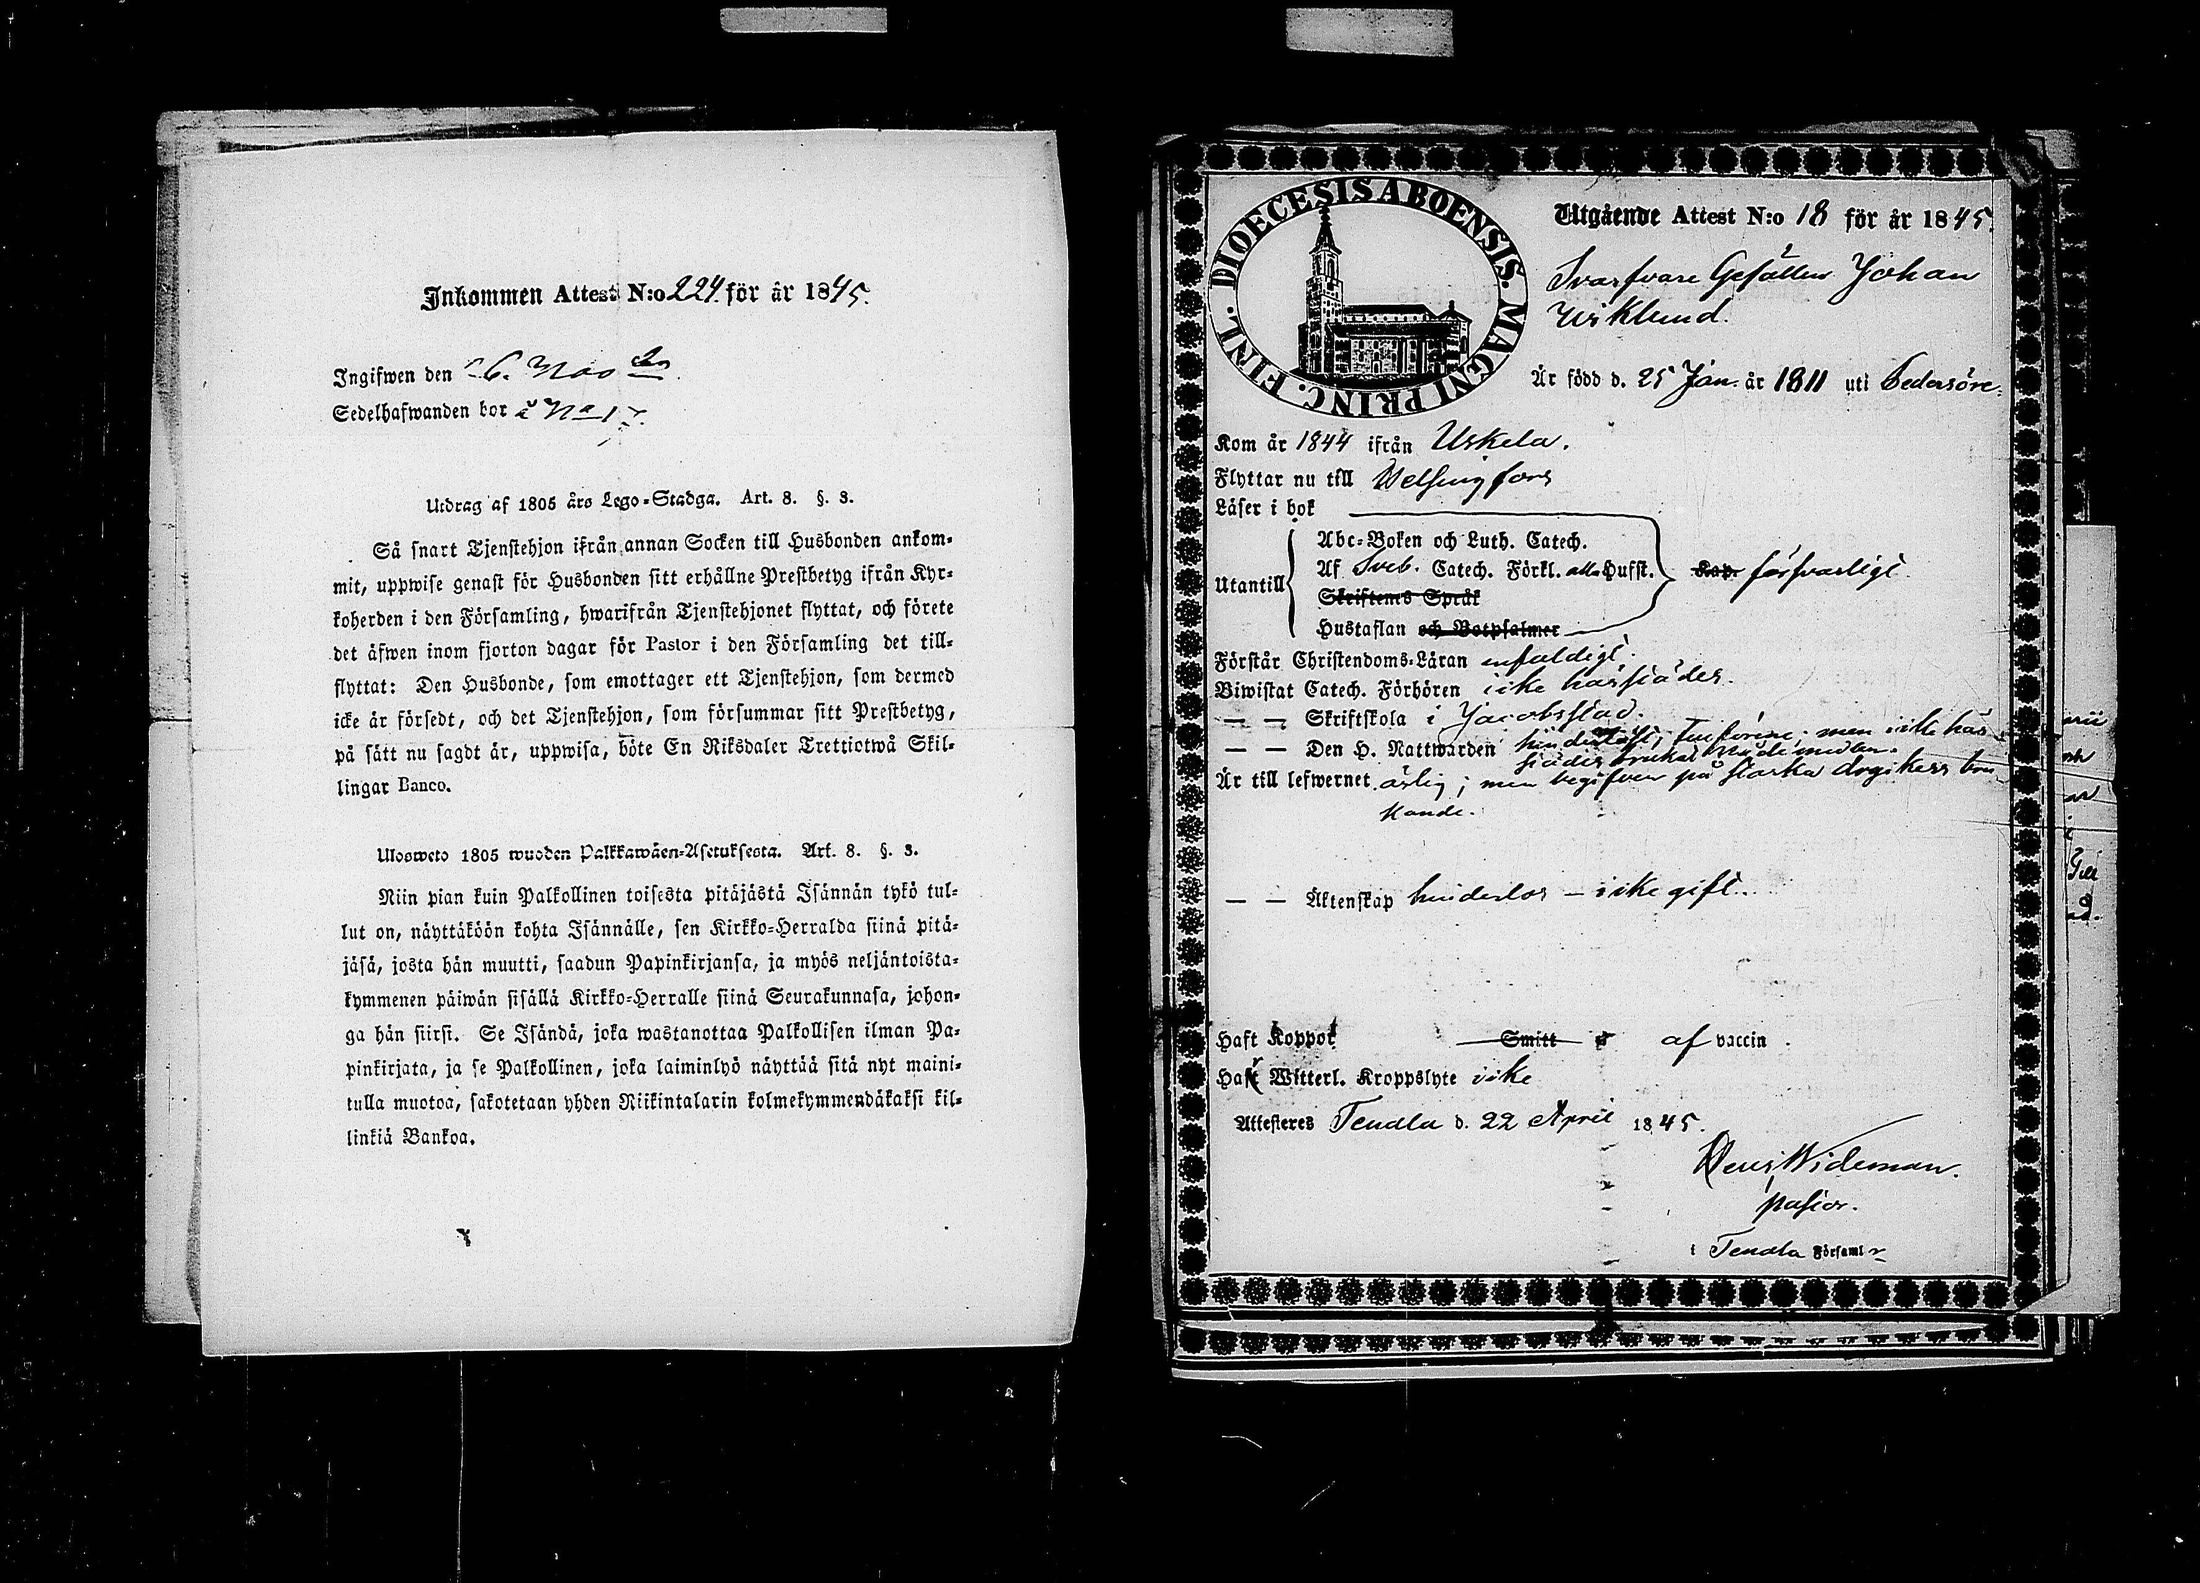 Inkommen Attest N:o 224 för år 1845.
Ingifwen den 26. Nov
Sedelhafwanden bor å No
Utdrag af 1805 års Lego-Stadga. Art. 8. §. 3.
Så snart Tjenstehjon ifrån annan Socken till Husbonden ankom-
mit, uppwise genast för Husbonden sitt erhållne Prestbetyg ifrån Kyr-
koherden i den Församling, hwarifrån Tjenstehjonet flyttat, och förete
det äfwen inom fjorton dagar för Pastor i den Församling det till-
flyttat: Den Husbonde, som emottager ett Tjenstehjon, som dermed
icke är försedt, och det Tjenstehjon, som försummar sitt Prestbetyg,
på sätt nu sagdt är, uppwisa, böte En Riksdaler Trettiotwå Skil-
lingar Banco.
Ulosweto 1805 wuoden Palkkawäen-Asetuksesta. Art. 8. §. 3.
Niin pian kuin Palkollinen toisesta pitäjästä Isännän tykö tul-
lut on, näyttäköön kohta Isännälle, sen Kirkko-Herralda siinä pitä-
jäsä, josta hän muutti, saadun Papinkirjansa, ja myös neljäntoista-
kymmenen päiwän sisällä Kirkko-Herralle siinä Seurakunnasa, johon-
ga hän siirsi. Se Isändä, joka wastanottaa Palkollisen ilman Pa-
pinkirjata, ja se Palkollinen, joka laiminlyö näyttää sitä nyt maini-
tulla muotoa, sakotetaan yhden Riikintalarin kolmekymmendäkaksi kil-
linkiä Bankoa.
DIOECESIS ABOENSIS. MAGNI PRINC. FINL.
Utgående Attest N:o 18 för år 1845.
Svarfvare Gesällen Johan
Wiklund.
Är född d. 25 Jan. år 1811 uti Pedersöre.
Kom år 1844 ifrån Uskela.
Flyttar nu till Helsingfors
Läser i bok
Abc-Boken och Luth. Catech.
Af Sveb. Catech. Förkl. alla Hufst. Kap. försvarligt
Utantill
Skriftenes Språk
Hustaflan och Botpsalmer
Förstår Christendoms-Läran enfaldigt.
Biwistat Catech. Förhören icke härstädes.
— — Skriftskola i Jacobsstad.
— — Den H. Nattwarden men icke här-
städes brukat Nådemedlen.
Är till lefwernet ärlig; men begifven på starka dryckers bru-
kande.
— — Äktenskap hinderlös – icke gift.
Haft Koppor Smitt af vaccin
Har Witterl. Kroppslyte icke
Attesteres Tenala d. 22 April 1845.
Wideman.
pastor.
i Tenala Församl